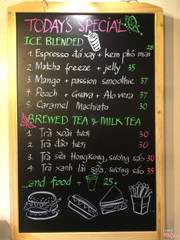 TODAY'S SPECIAL
ICE BLENDED
1. Espresso đá xay + kem phô mai 28
2. Matcha freeze + jelly 35
3. Mango + passion smoothie 37
4. Peach + Guava + Alo vera 37
5. Caramel Machiato 30
BREWED TEA & MILK TEA
1. Trà xoài tươi 30
2. Trà đào tươi 30
3. Trà sữa HongKong, sương sáo 30
4. Trà xanh lài sữa, sương sáo 35
...and food + 25.